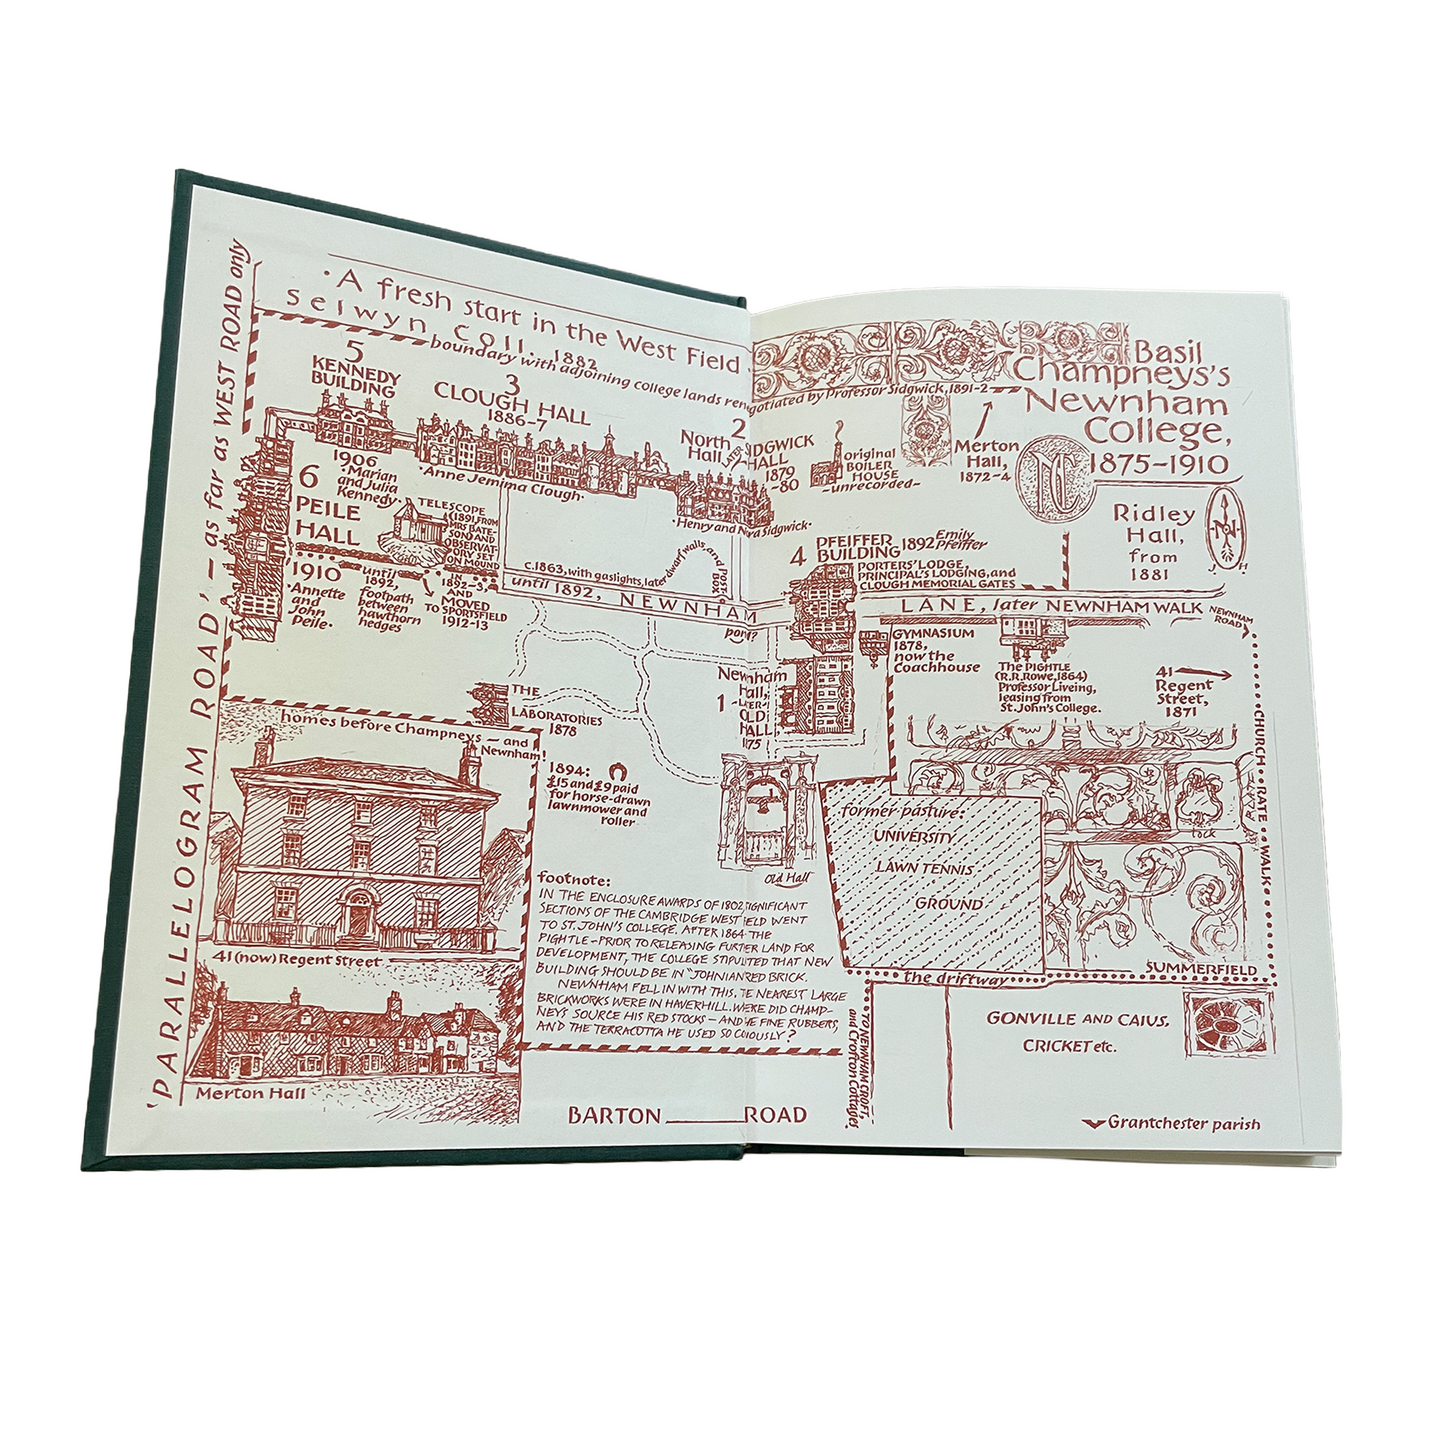 'PARALLELOGRAM ROAD' – as far as WEST ROAD only
· A fresh start in the West Field
selwyn coll. 1882
boundary with adjoining college lands
negotiated by Professor Sidgwick, 1891-2
5
KENNEDY
BUILDING
1906
·Marian
and Julia
Kennedy·
3
CLOUGH HALL
1886-7
·Anne Jemima Clough·
2
North
Hall,
LATER
SIDGWICK
HALL
1879
-80
·Henry and Nora Sidgwick·
6
PEILE
HALL
1910
·Annette
and
John
Peile·
TELESCOPE
(1891, FROM
MRS BATE-
SON) AND
OBSERVAT-
ORY SET
ON MOUND
IN
1892-3,
AND
MOVED
TO SPORTSFIELD
1912-13
until
1892,
footpath
between
hawthorn
hedges
c.1863, with gaslights, later dwarf walls, and Post-Box
until 1892, NEWNHAM
LANE, later NEWNHAM WALK
NEWNHAM
ROAD
pond?
original
BOILER
HOUSE
-unrecorded-
Merton
Hall,
1872-4
Basil
Champneys's
Newnham
College,
1875-1910
NC
Ridley
Hall,
from
1881
N
J H
4
PFEIFFER
BUILDING 1892 Emily
Pfeiffer
PORTERS' LODGE,
PRINCIPAL'S LODGING, and
CLOUGH MEMORIAL GATES
GYMNASIUM
1878,
now the
Coachhouse
The PIGHTLE
(R.R.Rowe, 1864)
Professor Liveing,
leasing from
St. John's College.
41
Regent
Street,
1871
CHURCH RATE WALK
Newnham
Hall,
1 -LATER-
OLD
HALL,
1875
THE
LABORATORIES
1878
homes before Champneys – and
Newnham!
41 (now) Regent Street
Merton Hall
1894:
£15 and £9 paid
for horse-drawn
lawnmower and
roller
Old Hall
footnote:
IN THE ENCLOSURE AWARDS OF 1802 SIGNIFICANT
SECTIONS OF THE CAMBRIDGE WEST FIELD WENT
TO ST. JOHN'S COLLEGE. AFTER 1864 – THE
PIGHTLE – PRIOR TO RELEASING FURTHER LAND FOR
DEVELOPMENT, THE COLLEGE STIPULATED THAT NEW
BUILDING SHOULD BE IN "JOHNIAN RED BRICK.
NEWNHAM FELL IN WITH THIS. THE NEAREST LARGE
BRICKWORKS WERE IN HAVERHILL. WERE DID CHAMP-
NEYS SOURCE HIS RED STOCKS – AND THE FINE RUBBERS,
AND THE TERRACOTTA HE USED SO COPIOUSLY?
former pasture:
UNIVERSITY
LAWN TENNIS
GROUND
lock
SUMMERFIELD
the driftway
TO NEWNHAM CROFT,
and Croft on Cottages.
GONVILLE AND CAIUS,
CRICKET etc.
BARTON ROAD
Grantchester parish